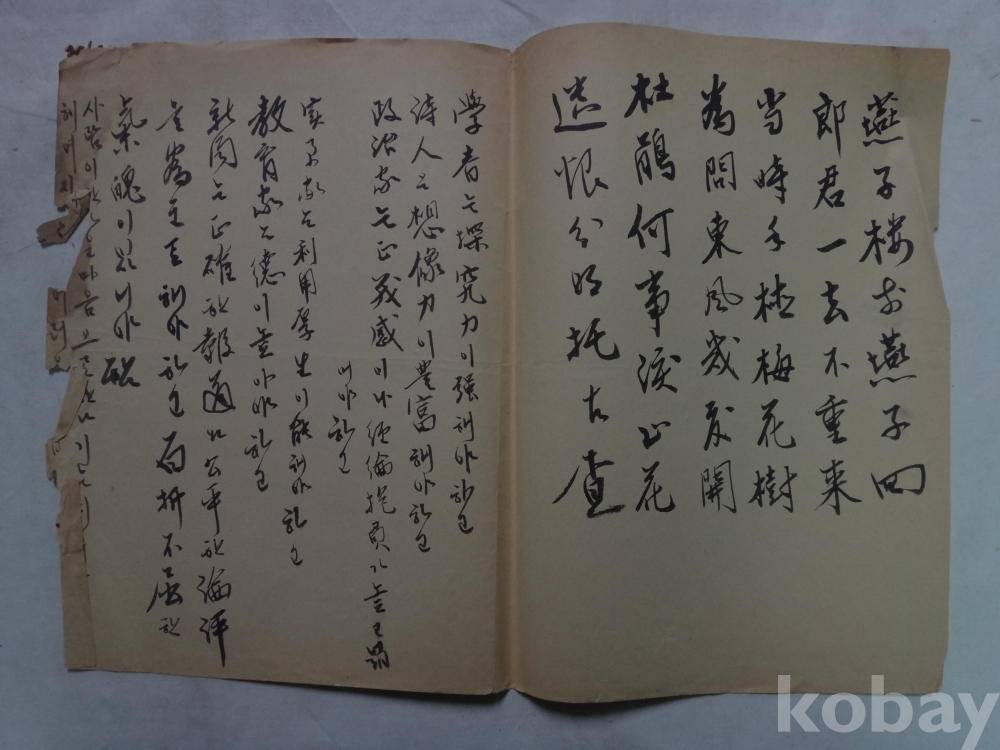 燕子楼前燕子回
郎君一去不重来
当時手植梅花樹
為問東風幾度開
杜鵑何事淚山花
遺恨分明托古查
學者는 探究力이 强해야 하고
詩人은 想像力이 豊富해야 하고
政治家는 正義感이나 經倫抱負가 높고 밝
어야 하고
實業家는 利用厚生이 能해야 하고
敎育家는 德이 높아야 하고
新聞은 正確한 報道와 公平한 論評
을 爲主로 해야 하고 百折不屈한
氣魄이 있어야
사람이 마음
kobay